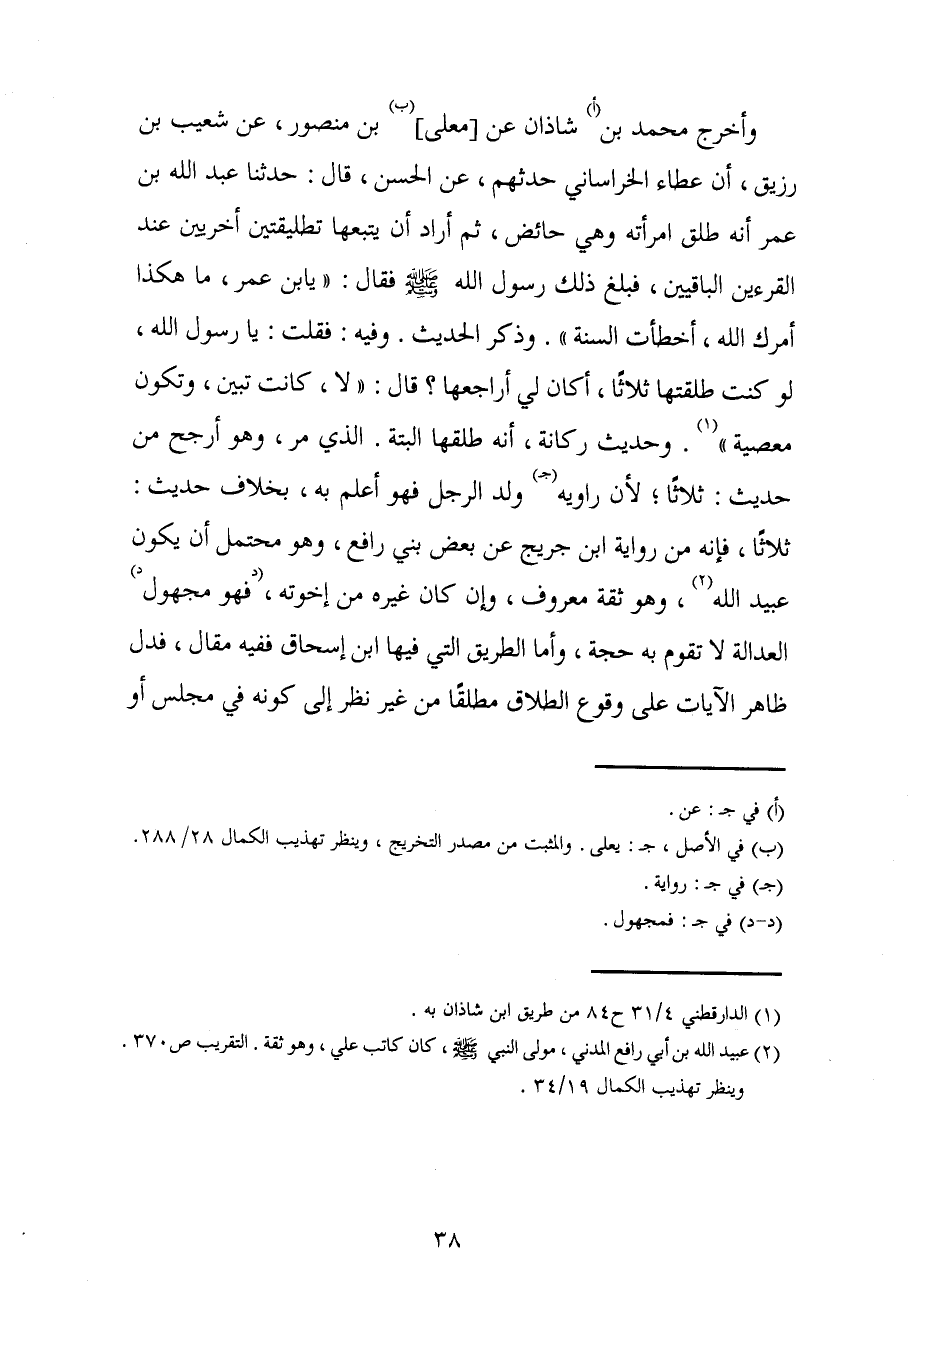 وأخرج محمد بن(أ) شاذان عن [معلى](ب) بن منصور ، عن شعيب بن
رزيق ، أن عطاء الخراساني حدثهم ، عن الحسن ، قال : حدثنا عبد الله بن
عمر أنه طلق امرأته وهي حائض ، ثم أراد أن يتبعها تطليقتين أخريين عند
القرءين الباقيين ، فبلغ ذلك رسول الله ﷺ فقال : « يابن عمر ، ما هكذا
أمرك الله ، أخطأت السنة » . وذكر الحديث . وفيه : فقلت : يا رسول الله ،
لو كنت طلقتها ثلاثًا ، أكان لي أراجعها ؟ قال : « لا ، كانت تبين ، وتكون
معصية »(١) . وحديث ركانة ، أنه طلقها البتة . الذي مر ، وهو أرجح من
حديث : ثلاثًا ؛ لأن راويه(جـ) ولد الرجل فهو أعلم به ، بخلاف حديث :
ثلاثًا ، فإنه من رواية ابن جريج عن بعض بني رافع ، وهو محتمل أن يكون
عبيد الله(٢) ، وهو ثقة معروف ، وإن كان غيره من إخوته ، (دفهو مجهولد)
العدالة لا تقوم به حجة ، وأما الطريق التي فيها ابن إسحاق ففيه مقال ، فدل
ظاهر الآيات على وقوع الطلاق مطلقًا من غير نظر إلى كونه في مجلس أو
(أ) في جـ : عن .
(ب) في الأصل ، جـ : يعلى . والمثبت من مصدر التخريج ، وينظر تهذيب الكمال ٢٨/ ٢٨٨.
(جـ) في جـ : رواية .
(د-د) في جـ : فمجهول .
(١) الدارقطني ٣١/٤ ح٨٤ من طريق ابن شاذان به .
(٢) عبيد الله بن أبي رافع المدني ، مولى النبي ﷺ ، كان كاتب علي ، وهو ثقة . التقريب ص٣٧٠ .
وينظر تهذيب الكمال ٣٤/١٩ .
٣٨